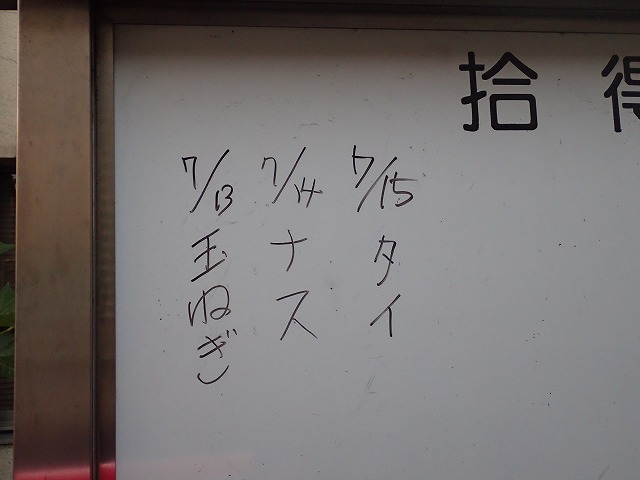 拾得
7/15
タイ
7/14
ナス
7/13
玉ねぎ